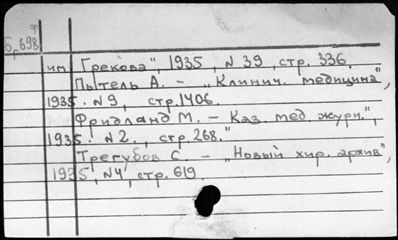 Б 698
им. Грекова", 1935, N 39, стр. 336.
Пытель А. – „Клинич. медицина",
1935. N9, стр. 1406.
Фридланд М. – Каз. мед. журн.",
1935. N2., стр. 268."
Трегубов С. – „Новый хир. архив",
1935, N4, стр. 619.